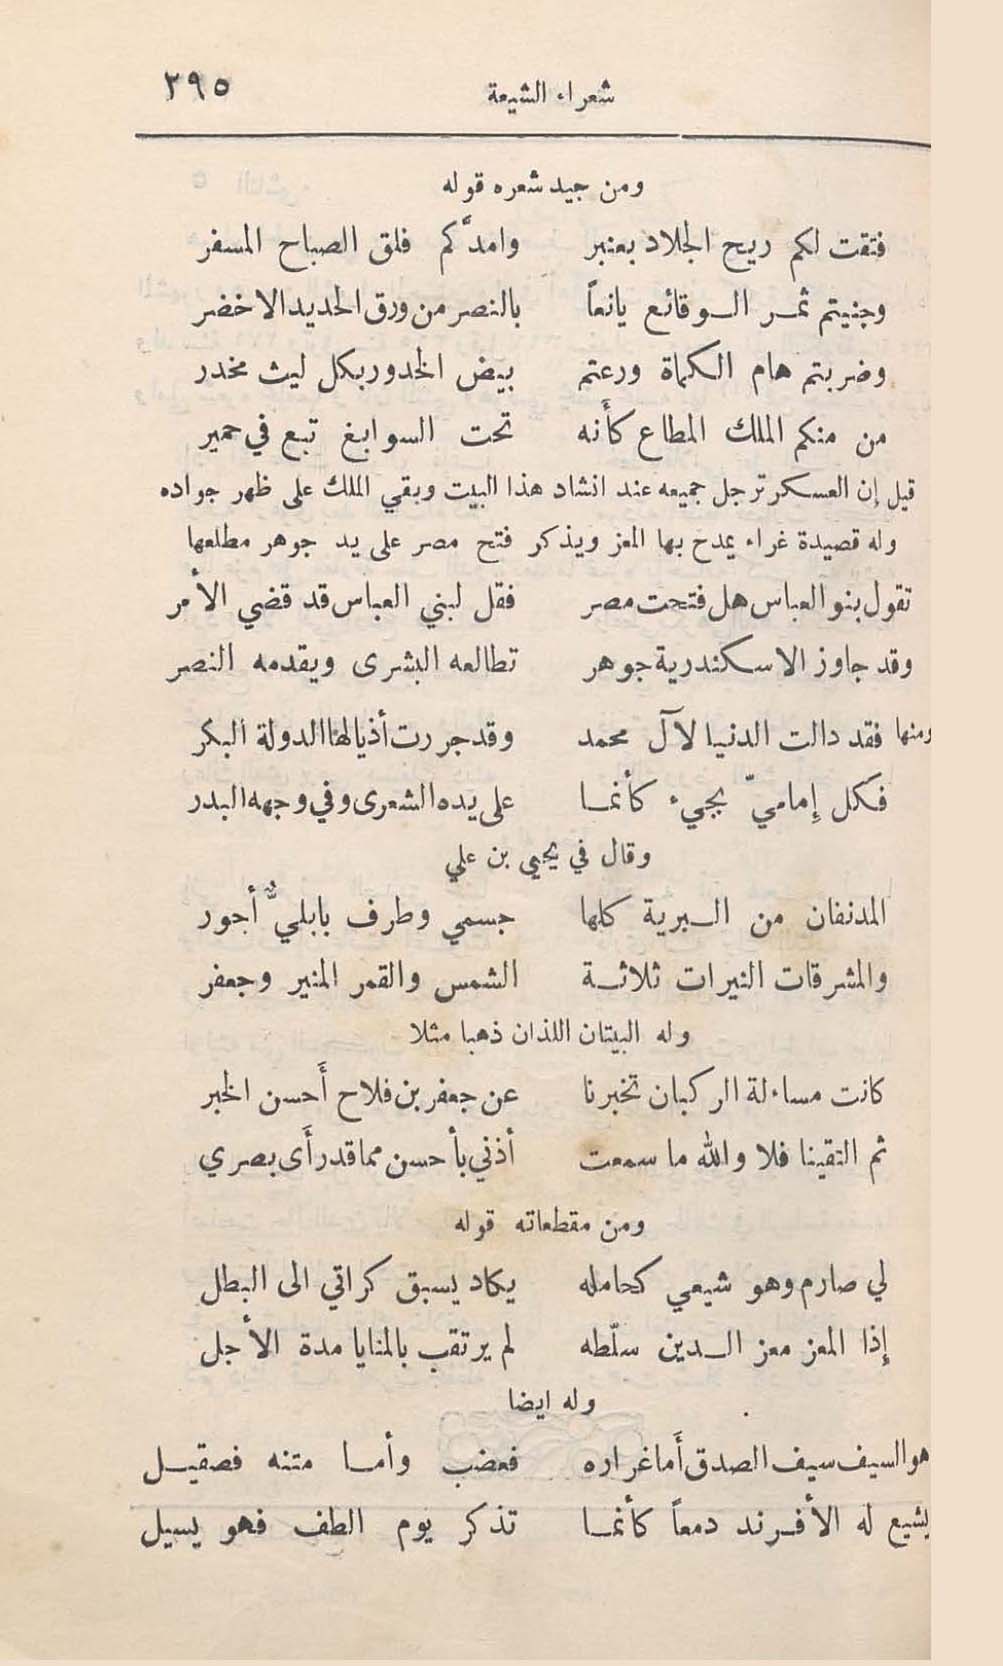 شعراء الشيعة ٢٩٥
ومن جيد شعره قوله
فتقت لكم ريح الجلاد بعنبر وامدَّكم فلق الصباح المسفر
وجنيتم ثمر الوقائع يانعاً بالنصر من ورق الحديد الاخضر
وضربتم هام الكماة ورعتم بيض الخدور بكل ليث مخدر
من منكم الملك المطاع كأَنه تحت السوابغ تبع في حمير
قيل إن العسكر ترجل جميعه عند انشاد هذا البيت وبقي الملك على ظهر جواده
وله قصيدة غراء يمدح بها المعز ويذكر فتح مصر على يد جوهر مطلعها
تقول بنو العباس هل فتحت مصر فقل لبني العباس قد قضي الأمر
وقد جاوز الاسكندرية جوهر تطالعه البشرى ويقدمه النصر
ومنها فقد دالت الدنيا لآل محمد وقد جررت أذيالها الدولة البكر
فكل إماميّ يجيء كأنما على يده الشعرى وفي وجهه البدر
وقال في يحيى بن علي
المدنفان من البرية كلها جسمي وطرف بابليٌّ أجور
والمشرقات النيرات ثلاثة الشمس والقمر المنير وجعفر
وله البيتان اللذان ذهبا مثلا
كانت مساءلة الركبان تخبرنا عن جعفر بن فلاح أَحسن الخبر
ثم التقينا فلا والله ما سمعت أذني بأحسن مما قد رأَى بصري
ومن مقطعاته قوله
لي صارم وهو شيعي كحامله يكاد يسبق كراتي الى البطل
إذا المعز معز الدين سلّطه لم يرتقب بالمنايا مدة الأجل
وله ايضا
هو السيف سيف الصدق أَما غراره فعضب وأما متنه فصقيل
يشيع له الأفرند دمعاً كأنما تذكر يوم الطف فهو يسيل